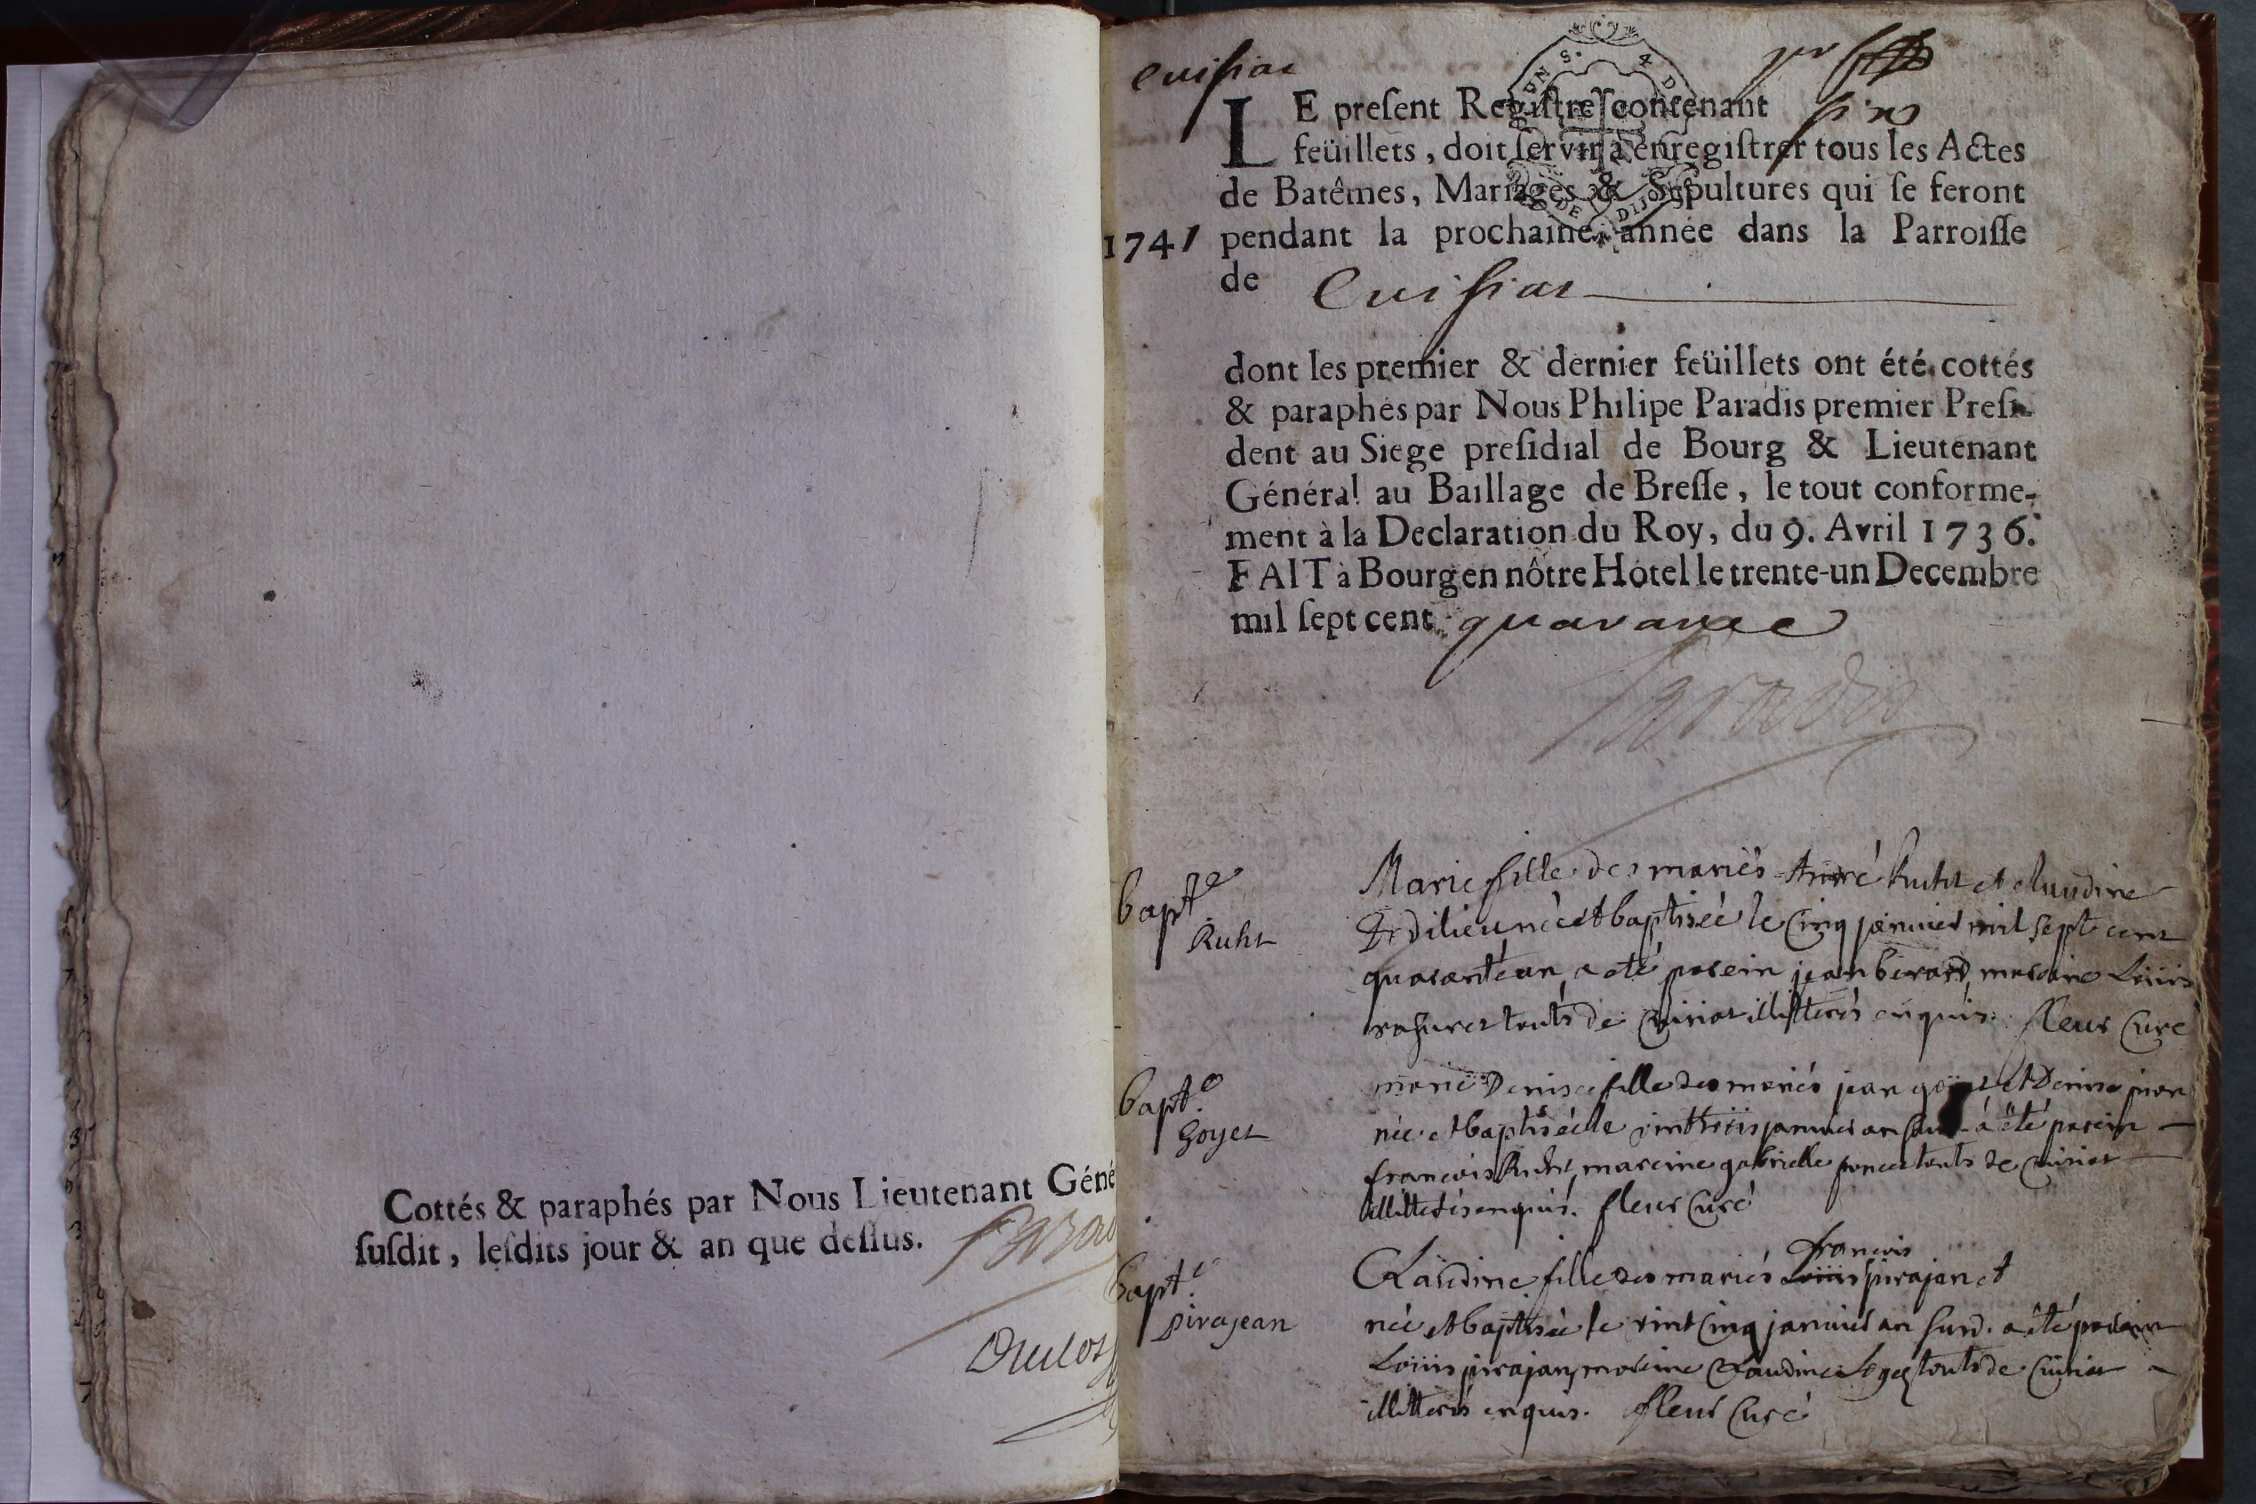 Cottés & paraphés par Nous Lieutenant Géné
ſuſdit, leſdits jour & an que deſſus.
Cuisiat
LE preſent Regiſtre contenant six
feüillets, doit ſervir à enregiſtrer tous les Actes
de Batêmes, Mariages & Sepultures qui ſe feront
1741 pendant la prochaine année dans la Parroiſſe
de Cuisiat
dont les premier & dernier feüillets ont été cottés
& paraphés par Nous Philipe Paradis premier Preſi-
dent au Siege preſidial de Bourg & Lieutenant
Général au Baillage de Breſſe, le tout conforme-
ment à la Declaration du Roy, du 9. Avril 1736.
FAIT à Bourg en nôtre Hôtel le trente-un Decembre
mil ſept cent quarante
Paradis
bapt.e
Ruht
Marie fille des mariés André Ruht et claudine
née et baptisée le cinq janvier mil sept cent
quarante un, a eté parein jean berard, mareine Loüise
touts de Cuisiat illitterés enquis. fleur Curé
bapt.e
Goyet
marie Denise fille des mariés jean goyet et Denise
née et baptisée le vint trois janvier an a été parein
francois Ruht, mareine gabrielle poncet touts de Cuisiat
illitterés enquis. fleur Curé
bapt.e
pirajean
francois
Claudine fille des mariés Loüis pirajan et
née et baptisée le vint cinq janvier an susd. a été parein
Loüis pirajan, mareine Claudine touts de Cuisiat
illitterés enquis. fleur Curé